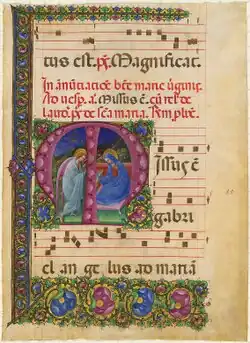 tus est. p̄. Magnificat.
In anūtiatiōe btē marie ūginis.
Ad uesp. a. Missus ē cū rel. de
laud. p̄. de sc̄a maria. Tem pūtē.
M issus ē
gabri
el an ge lus ad mariā